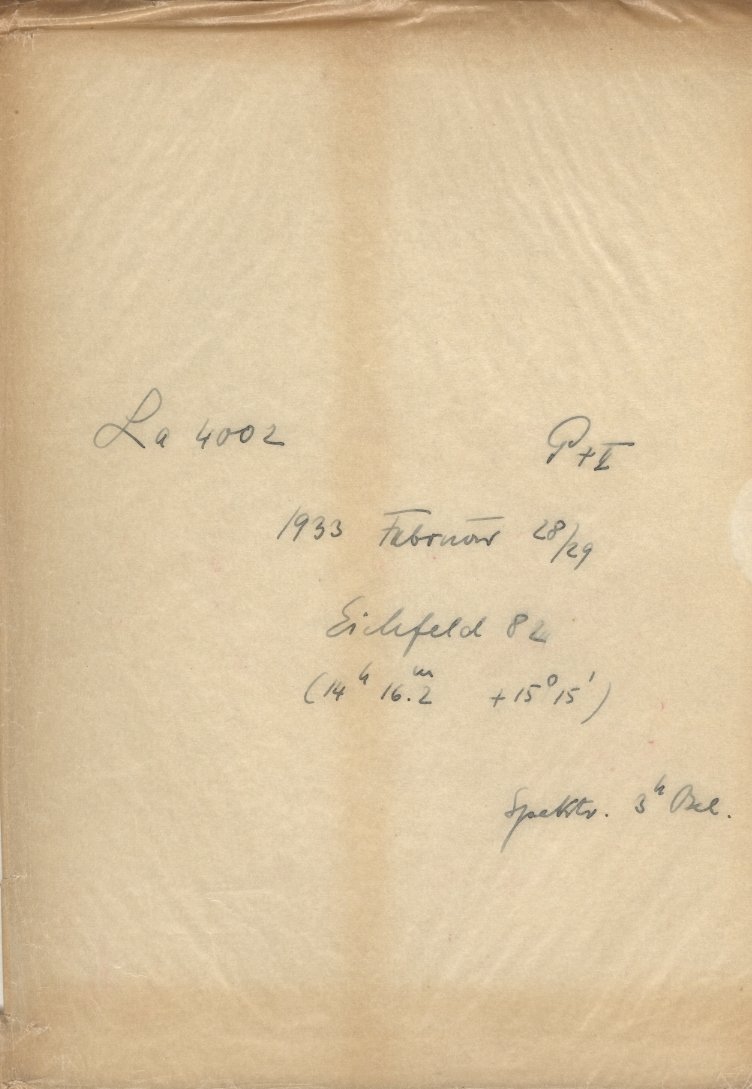 La 4002 P+I
1933 Februar 28/29
Eichfeld 82
(14h 16.m2 +15°15')
Spektr. 3h Bel.